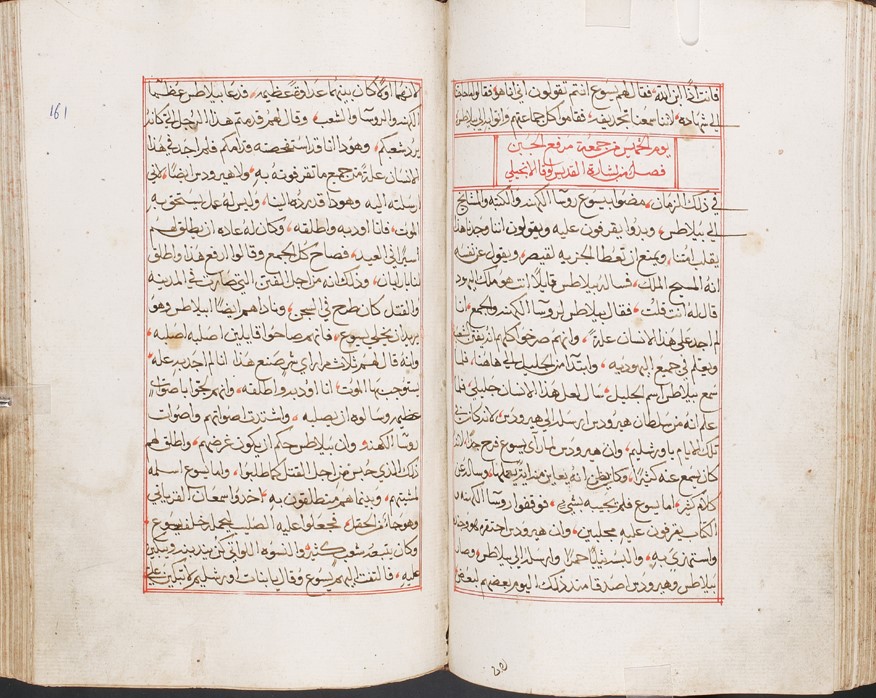 فانت اذًا ابن الله، فقال لهم يسوع انتم تقولون اني انا هو، فقالوا
الى شهاده، لاننا سمعنا تجديفه، فقاموا كل جماعتهم واتوا به الى بيلاطس
يوم الخميس من جمعة مرفع الجبن
فصل من بشارة القديس لوقا الانجيلي
في ذلك الزمان، مضوا بيسوع روسآ الكهنه والكتبه والمشايخ
الى بيلاطس، وبدوا يقرفون عليه ويقولون اننا وجدنا هذا
يقلب امتنا، ويمنع ان تعطا الجزيه لقيصر، ويقول عن نفسه
انه المسيح الملك، فساله بيلاطس قايلًا انت هو ملك اليهود
قال له انت قلت، فقال بيلاطس لروسآ الكهنه والجمع، انا
لم اجد على هذا الانسان علة، وانهم صرخوا
ويعلم في جميع اليهوديه، وابتدا من الجليل الى هاهنا، فلما
سمع بيلاطس اسم الجليل، سال لعل هذا الانسان جليلي، فلما
علم انه من سلطان هيرودس ارسله الى هيرودس، لانه كان في
تلك الايام باورشليم، وان هيرودس لما راى يسوع فرح جدًا، لانه
كان يسمع عنه كثيرًا، وكان يظن انه يعاين منه اية يعملها، وساله عن
كلام كثير، اما يسوع فلم يجيبه بشيء، فوقفوا روسآ الكهنه و
الكتاب يقرفون عليه، وان هيرودس احتقره
واستهزى به، والبسه ثيابًا حمرًا، وارسله الى بيلاطس، وصار
بيلاطس وهيرودس اصدقا منذ ذلك اليوم بعضهم لبعض
لانهما اولًا كان بينهما عداوة عظيمه، فدعا بيلاطس عظما
الكهنه والروسآ والشعب، وقال لهم قدمتم هذا الرجل الي كانه
يرد شعبكم، وهودا انا قد استفحصته قدامكم فلم اجد في هذا
الانسان علة من جميع ما تقرفونه به، ولا هيرودس ايضًا، لاني
ارسلته اليه وهودا قد رده الينا، وليس له عمل يستحق به
الموت، فانا اودبه واطلقه، وكان له عاده ان يطلق لهم
اسيرًا في العيد، فصاح كل الجمع وقالوا ارفع هذا واطلق
لنا بارابان، وذلك انه من اجل الفتن التي صارت في المدينه
والقتل كان طرح في السجن، وناداهم ايضًا بيلاطس وهو
يريد ان يخلي يسوع، فانهم صاحوا قايلين اصلبه اصلبه،
وانه قال لهم ثلاث مرار اي شر صنع هذا انا لم اجد به علة
يستوجب بها الموت، انا اودبه واطلقه، وانهم لجوا باصوات
عظيمه، وسالوه ان يصلبه، واشتدت اصواتهم واصوات
روسآ الكهنه، وان بيلاطس حكم ان يكون غرضهم، واطلق لهم
ذلك الذي حبس من اجل القتل كما طلبوا، واما يسوع اسلمه
لمشيتهم، وبينما هم منطلقون به، اخدوا سمعان القرياني
وهو جائز من الحقل، فجعلوا عليه الصليب ليحمله خلف يسوع
وكان يتبعه شعب كثير، والنسوه اللواتي كن يندبنه ويبكين
عليه، فالتفت اليهم يسوع وقال يا بنات اورشليم لا تبكين علي
161